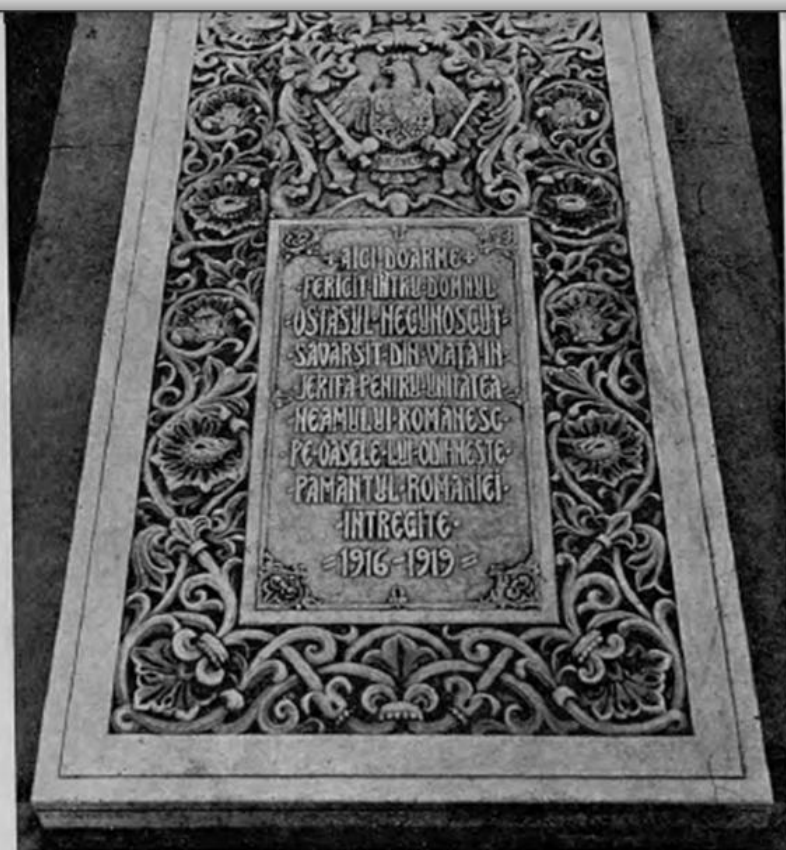 +AICI·DOARME+
·FERICIT·ÎNTRU·DOMNUL
·OSTAȘUL·NECUNOSCUT·
·SĂVÂRȘIT·DIN·VIAȚĂ·IN·
JERTFA·PENTRU·UNITATEA
NEAMULUI·ROMÂNESC·
PE·OASELE·LUI·ODIHNEȘTE·
·PĂMÂNTUL·ROMÂNIEI·
·INTREGITE·
=1916-1919=